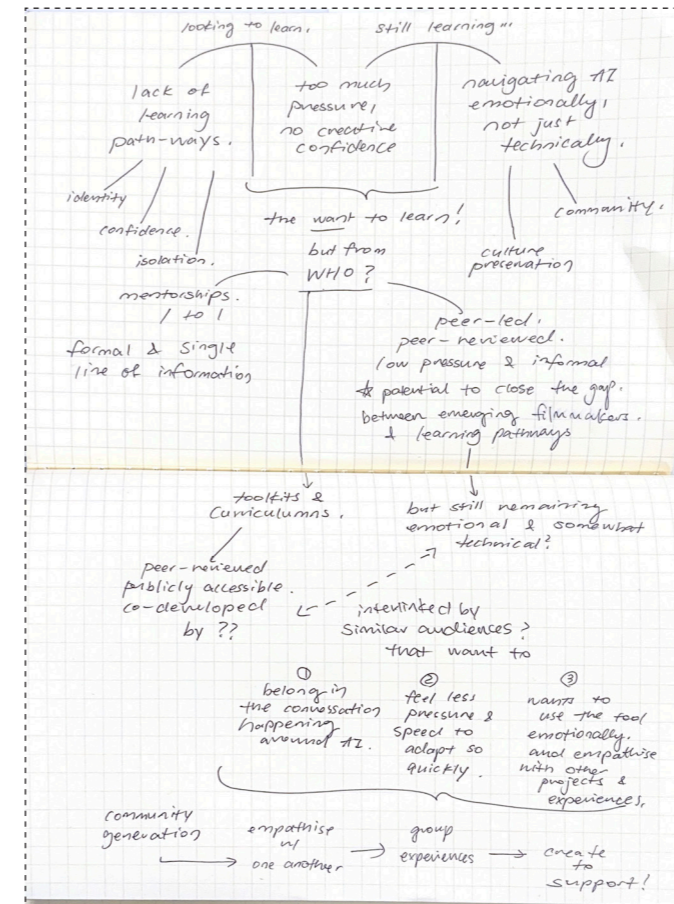 looking to learn.
still learning...
lack of
learning
path-ways.
too much
pressure,
no creative
confidence
navigating AI
emotionally,
not just
technically.
identity
confidence.
isolation.
the want to learn!
community.
culture
preservation
but from
WHO?
mentorships.
1 to 1
formal & single
line of information
peer-led.
peer-reviewed.
low pressure & informal
* potential to close the gap.
between emerging filmmakers.
& learning pathways
toolkits &
curriculumns.
but still remaining
emotional & somewhat
technical?
peer-reviewed
publicly accessible.
co-developed
by ??
interlinked by
similar audiences?
that want to
①
belong in
the conversation
happening
around AI.
②
feel less
pressure &
speed to
adapt so
quickly.
③
wants to
use the tool
emotionally.
and empathise
with other
projects &
experiences.
community
generation
empathise
w/
one another
group
experiences
create
to
support!